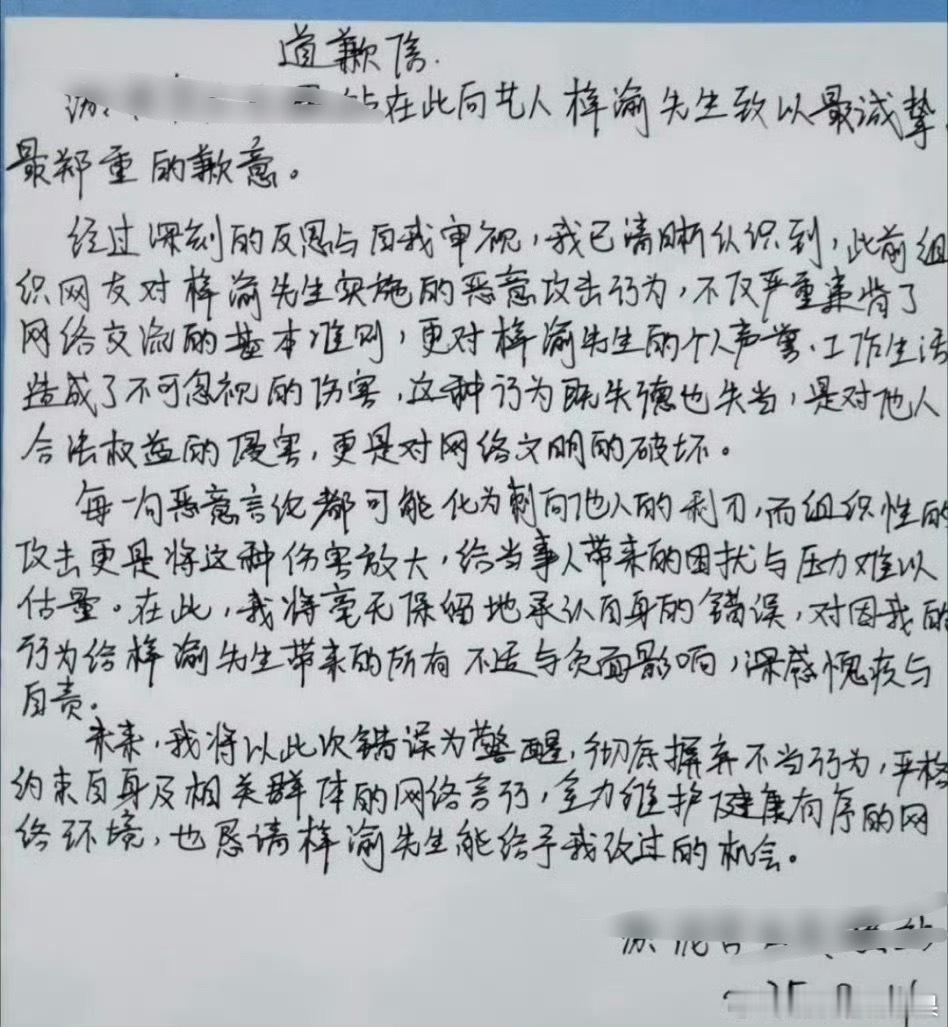 道歉信.
在此向艺人梓渝先生致以最诚挚、
最郑重的歉意。
经过深刻的反思与自我审视，我已清晰认识到，此前组
织网友对梓渝先生实施的恶意攻击行为，不仅严重违背了
网络交流的基本准则，更对梓渝先生的个人声誉、工作生活
造成了不可忽视的伤害，这种行为既失德也失当，是对他人
合法权益的侵害，更是对网络文明的破坏。
每一句恶意言论都可能化为刺向他人的利刃，而组织性的
攻击更是将这种伤害放大，给当事人带来的困扰与压力难以
估量。在此，我将毫无保留地承认自身的错误，对因我的
行为给梓渝先生带来的所有不适与负面影响，深感愧疚与
自责。
未来，我将以此次错误为警醒，彻底摒弃不当行为，严格
约束自身及相关群体的网络言行，全力维护健康有序的网
络环境，也恳请梓渝先生能给予我改过的机会。